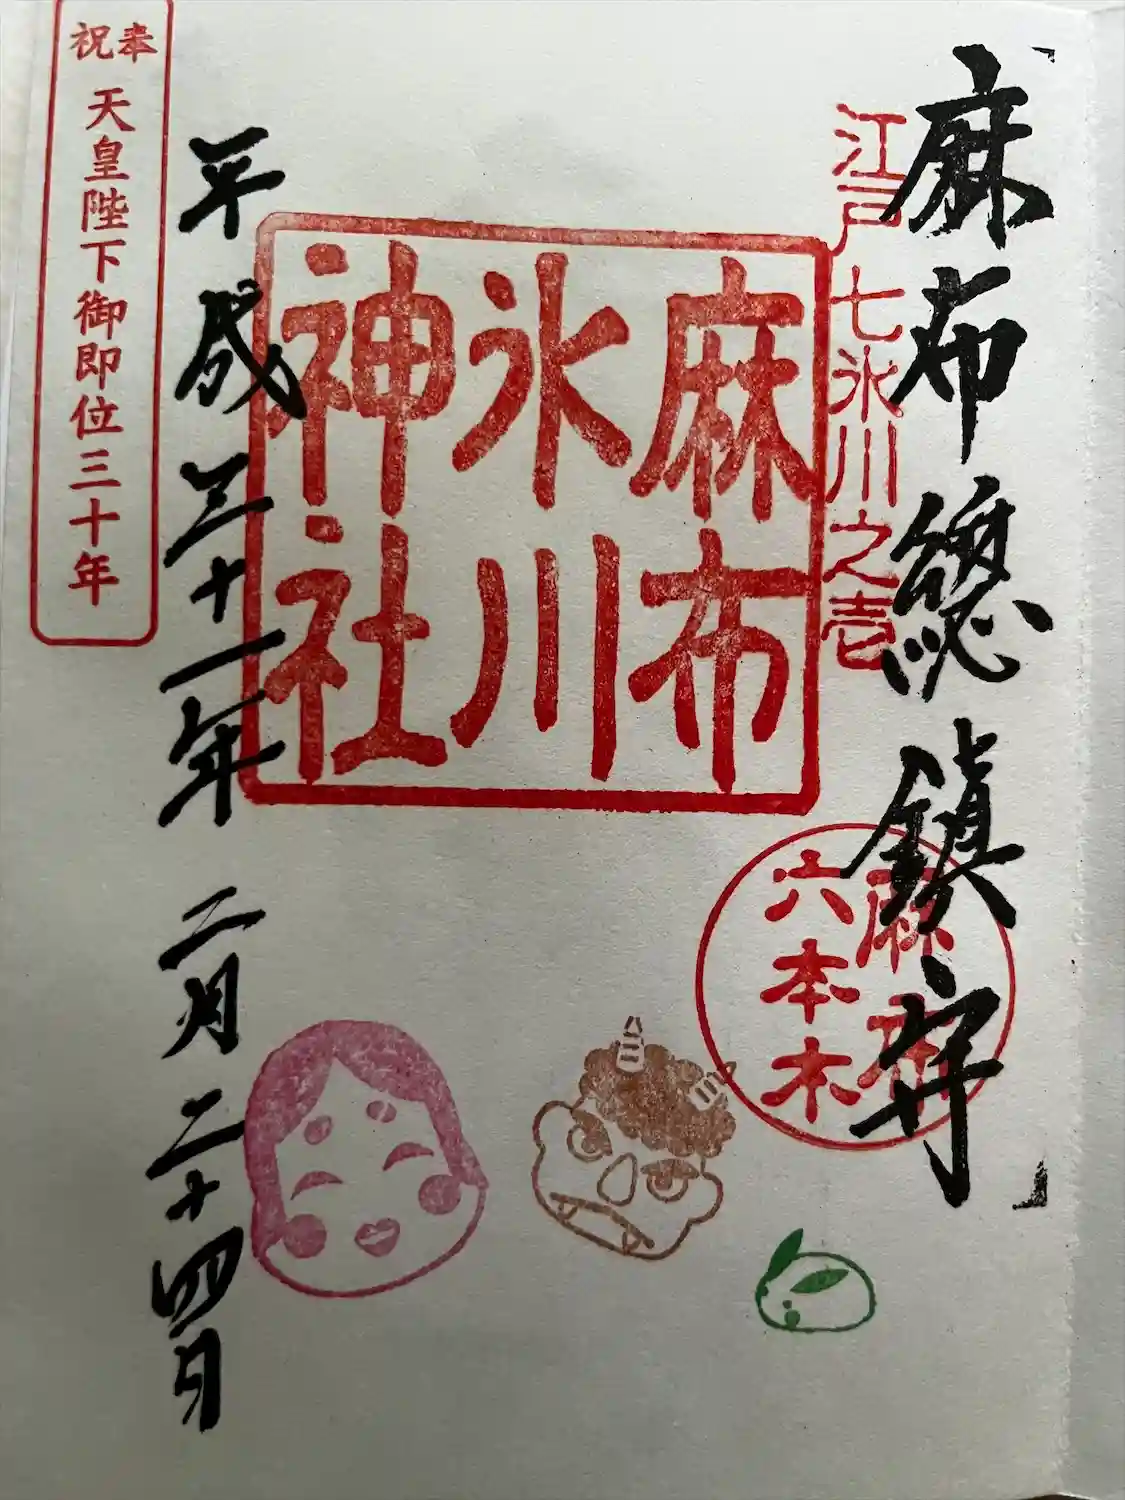 麻布總鎮守
江戸七氷川之壱
麻布
六本木
麻布
氷川
神社
平成三十一年二月二十四日
奉祝
天皇陛下御即位三十年